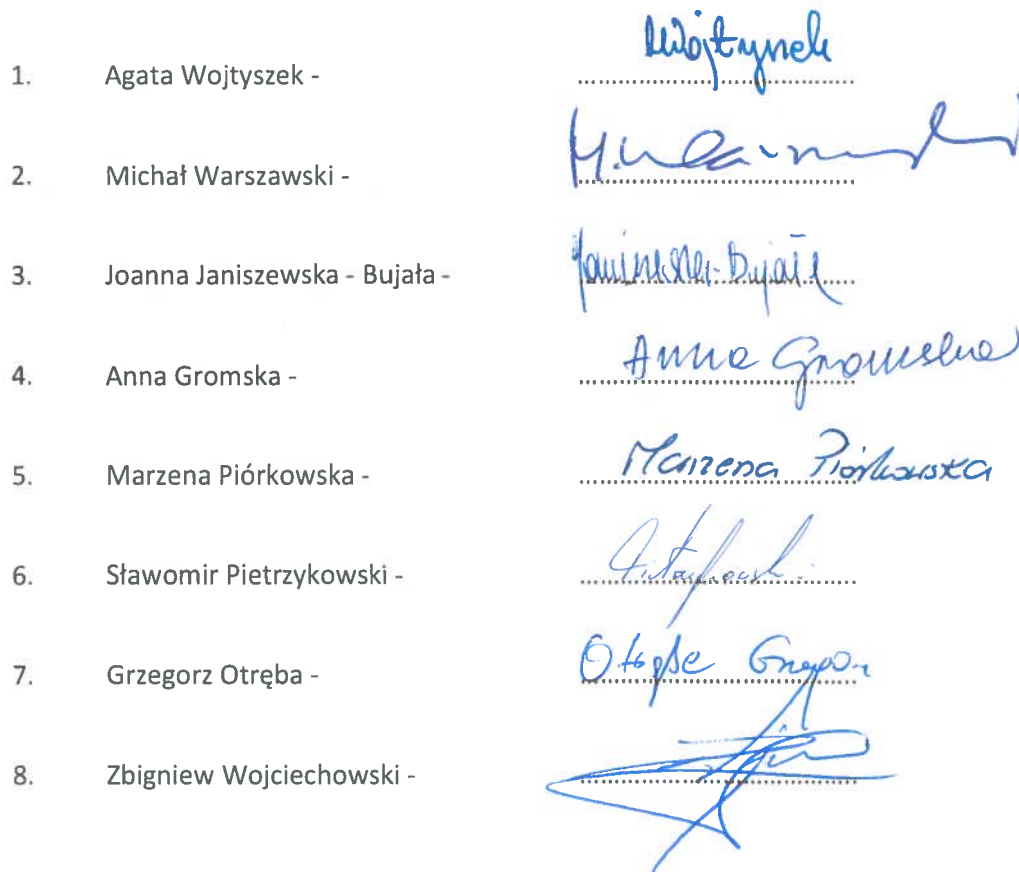 1. Agata Wojtyszek - Wojtyszek
2. Michał Warszawski -
3. Joanna Janiszewska - Bujała - Janiszewska-Bujała
4. Anna Gromska - Anna Gromska
5. Marzena Piórkowska - Marzena Piórkowska
6. Sławomir Pietrzykowski -
7. Grzegorz Otręba - Otręba Grzegorz
8. Zbigniew Wojciechowski -